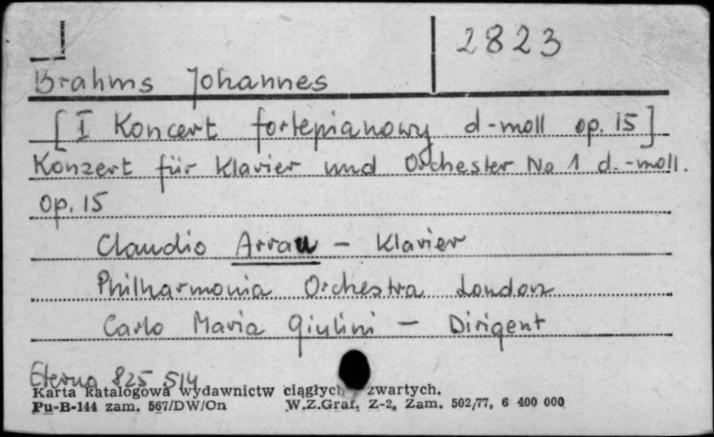 2823
Brahms Johannes
[I Koncert fortepianowy d-moll op. 15]
Konzert für Klavier und Orchester No 1 d.-moll.
op. 15
Claudio Arrau – Klavier
Philharmonia Orchestra London
Carlo Maria Giulini – Dirigent
Eterna 825 514
Karta katalogowa wydawnictw ciągłych zwartych.
Pu-B-144 zam. 567/DW/On W.Z.Graf. Z-2, Zam. 502/77, 6 400 000